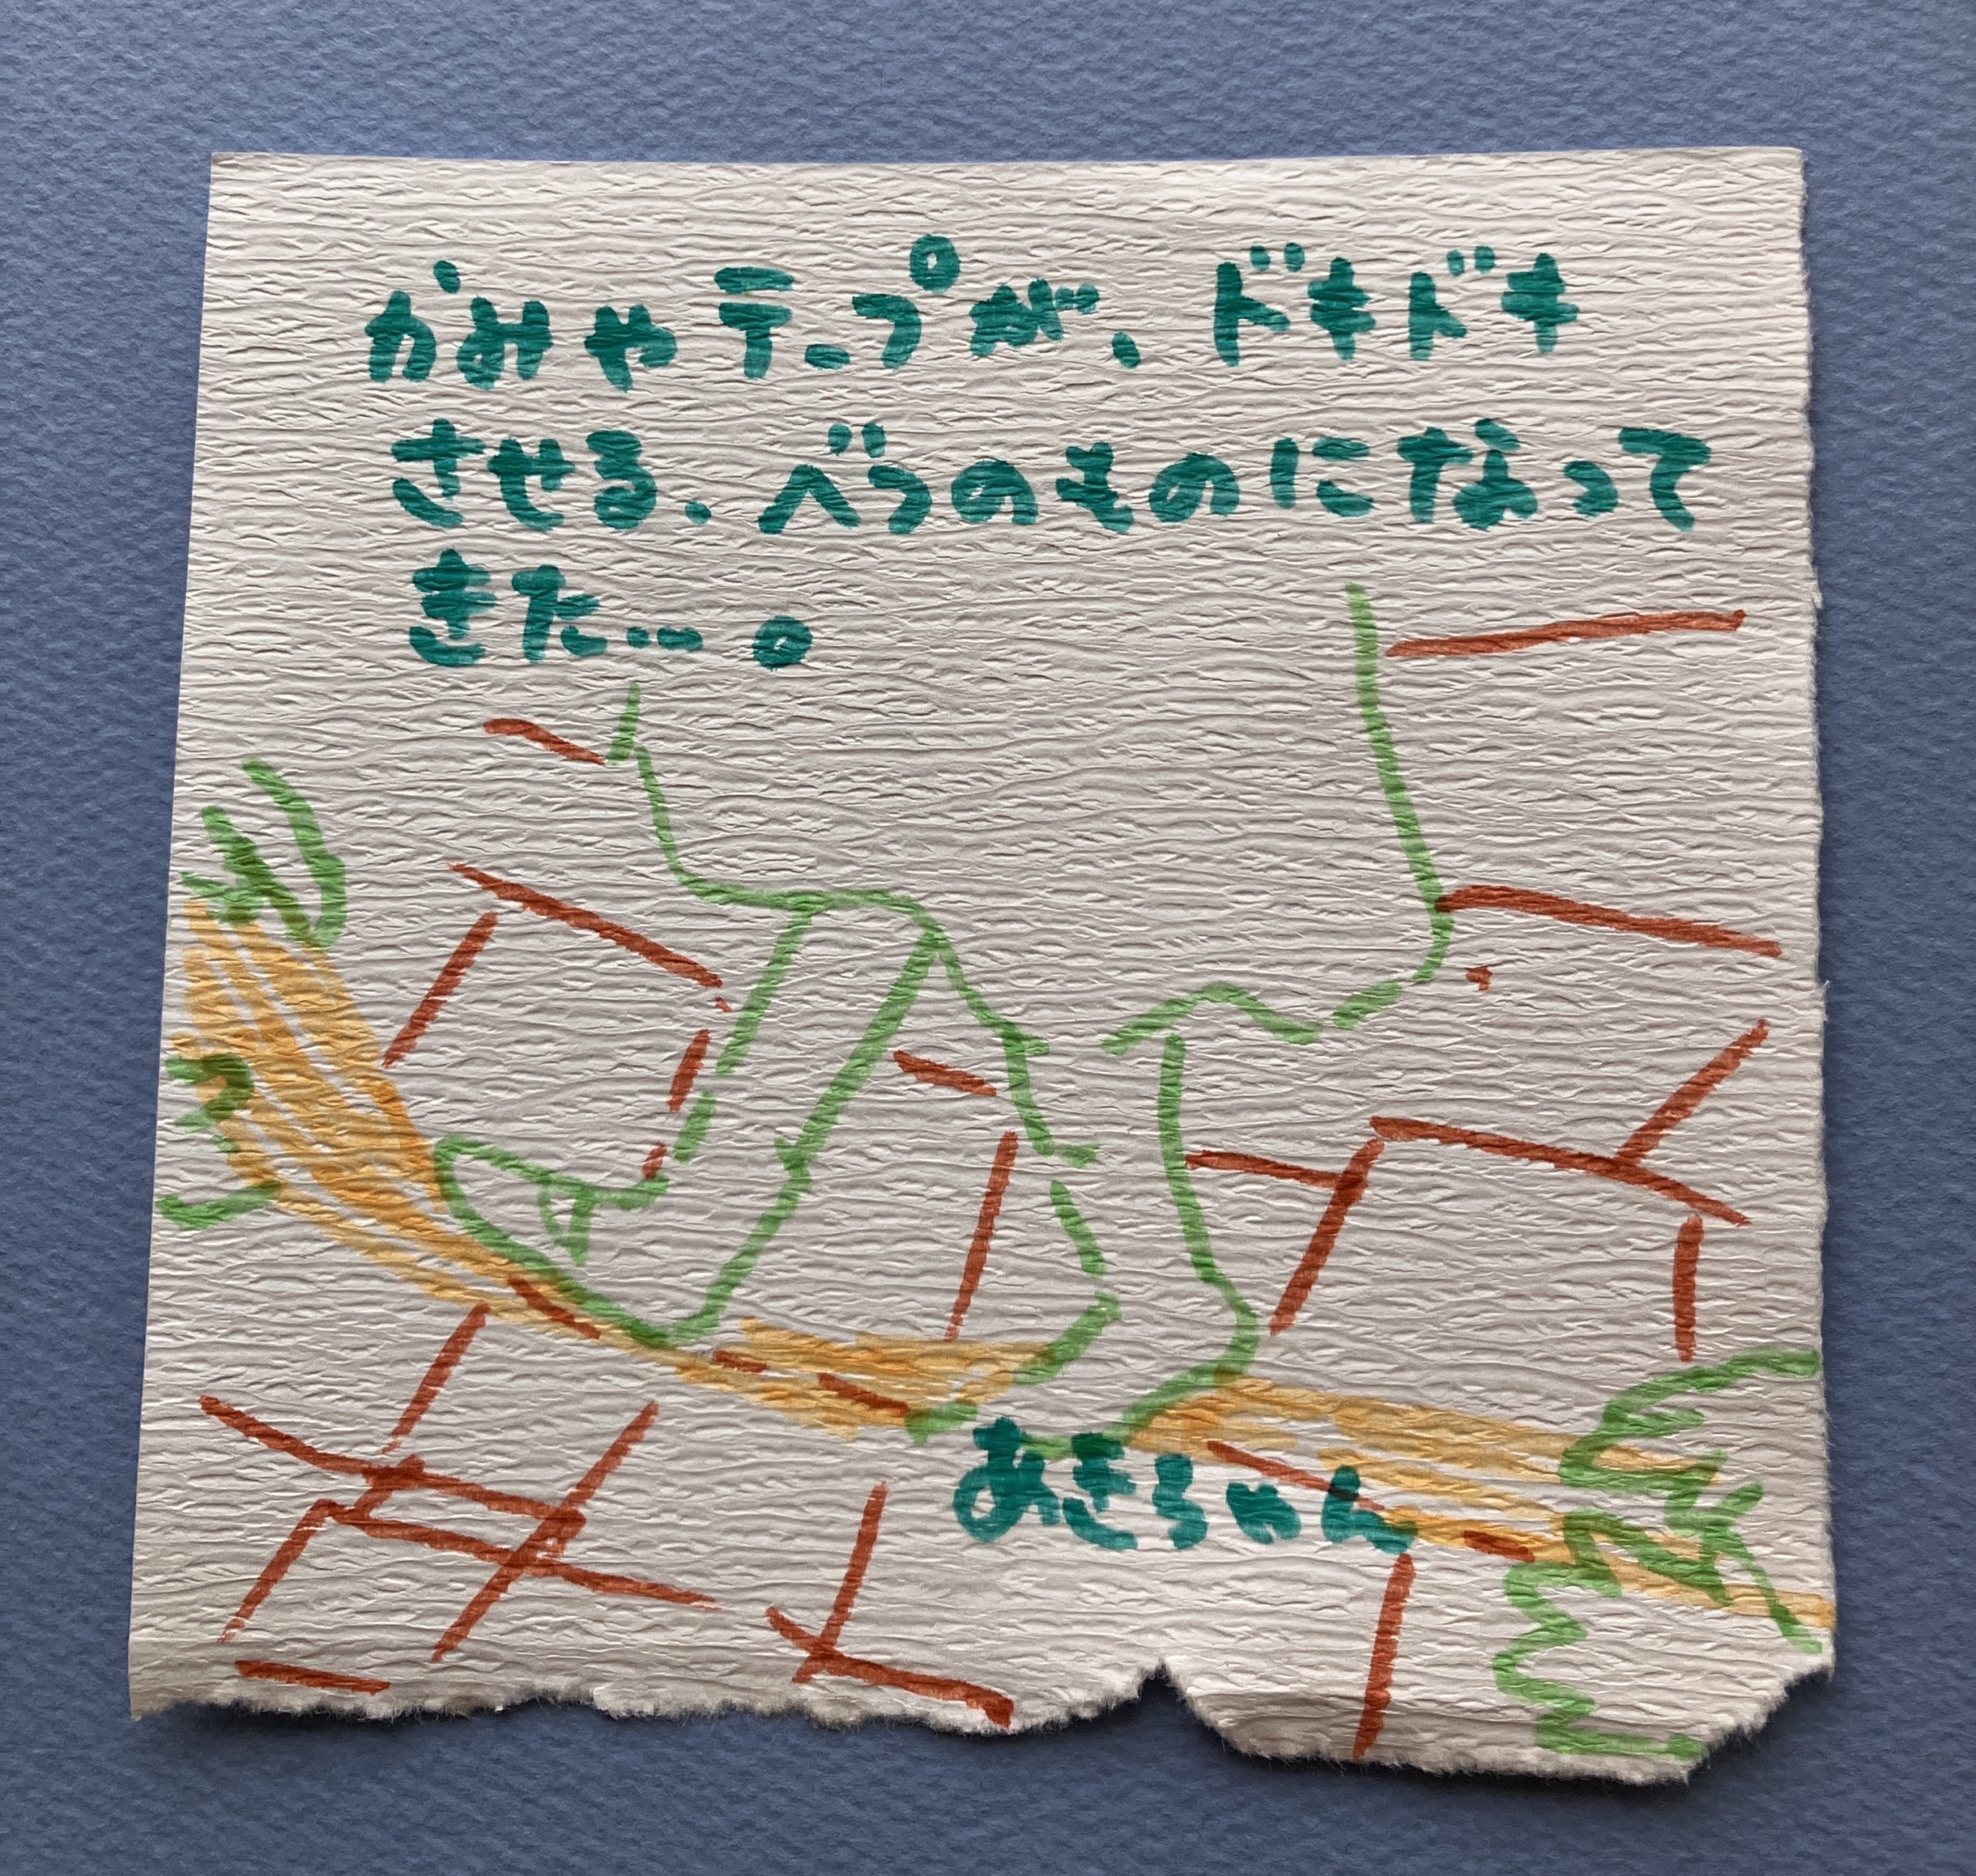 かみやテープが、ドキドキ
させる、べつのものになって
きた…。
あきちゃん